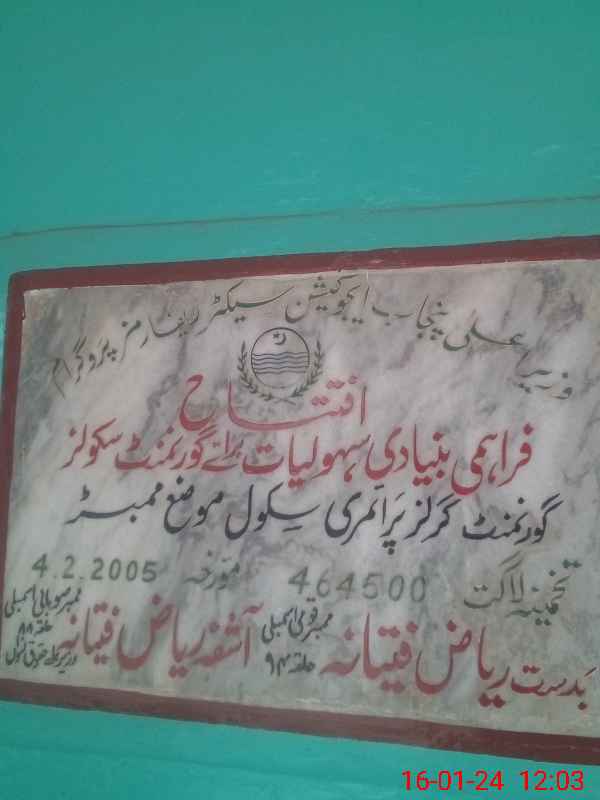 وزیر اعلیٰ پنجاب ایجوکیشن سیکٹر ریفارمز پروگرام
افتتاح
فراہمی بنیادی سہولیات برائے گورنمنٹ سکولز
گورنمنٹ گرلز پرائمری سکول موضع ممبڑ
تخمینہ لاگت 464500 مورخہ 4.2.2005
بدست ریاض فتیانہ ممبر قومی اسمبلی حلقہ ۹۴ آشفہ ریاض فتیانہ ممبر صوبائی اسمبلی حلقہ ۸۸
16-01-24 12:03